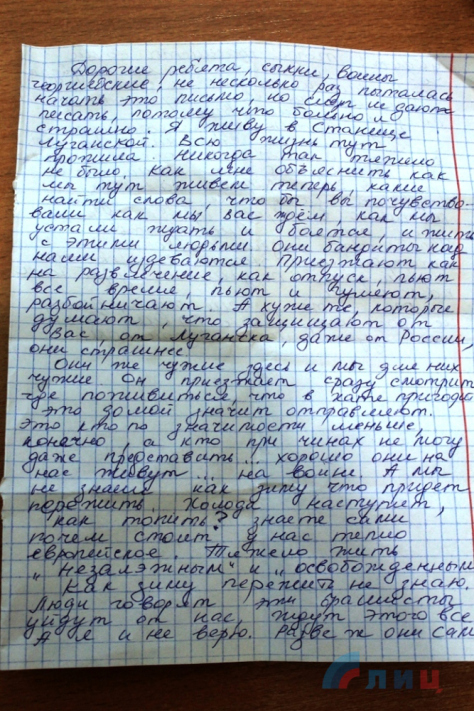 Дорогие ребята, сынки, воины
георгиевские, не несколько раз пыталась
начать это письмо, но не дают
писать, потому что больно и
страшно. Я живу в Станице
Луганской. Всю жизнь тут
прожила. Никогда так тяжело
не было, как мне объяснить как
мы тут живем теперь, какие
найти слова, что бы вы почувство-
вали как мы вас ждём, как мы
устали ждать и боятся, и жить
с этими людьми они бандиты над
нами издеваются. Приезжают как
на развлечение, как отпуск, пьют
все время пьют и гуляют,
разбойничают. А хуже те, которые
думают, что защищают от
вас, от Луганска, даже от России,
они страшнее.
Они же чужие здесь и мы для них
чужие. Он приезжает сразу смотрит
где поживиться, что в хате пригодит
это домой значит отправляют.
Это кто по значимости меньше,
конечно, а кто при чинах не могу
даже представить... хорошо они на
нас живут... на войне. А мы
не знаем как зиму что придет
пережить. Холода наступят,
как топить? знаете сами
почем стоит у нас тепло
европейское. Тяжело жить
"незалэжным" и "освобожденным"
Как зиму пережить не знаю.
Люди говорят эти фашисты
уйдут от нас, ждут этого все
А я и не верю. Разве ж они сами
ЛИЦ